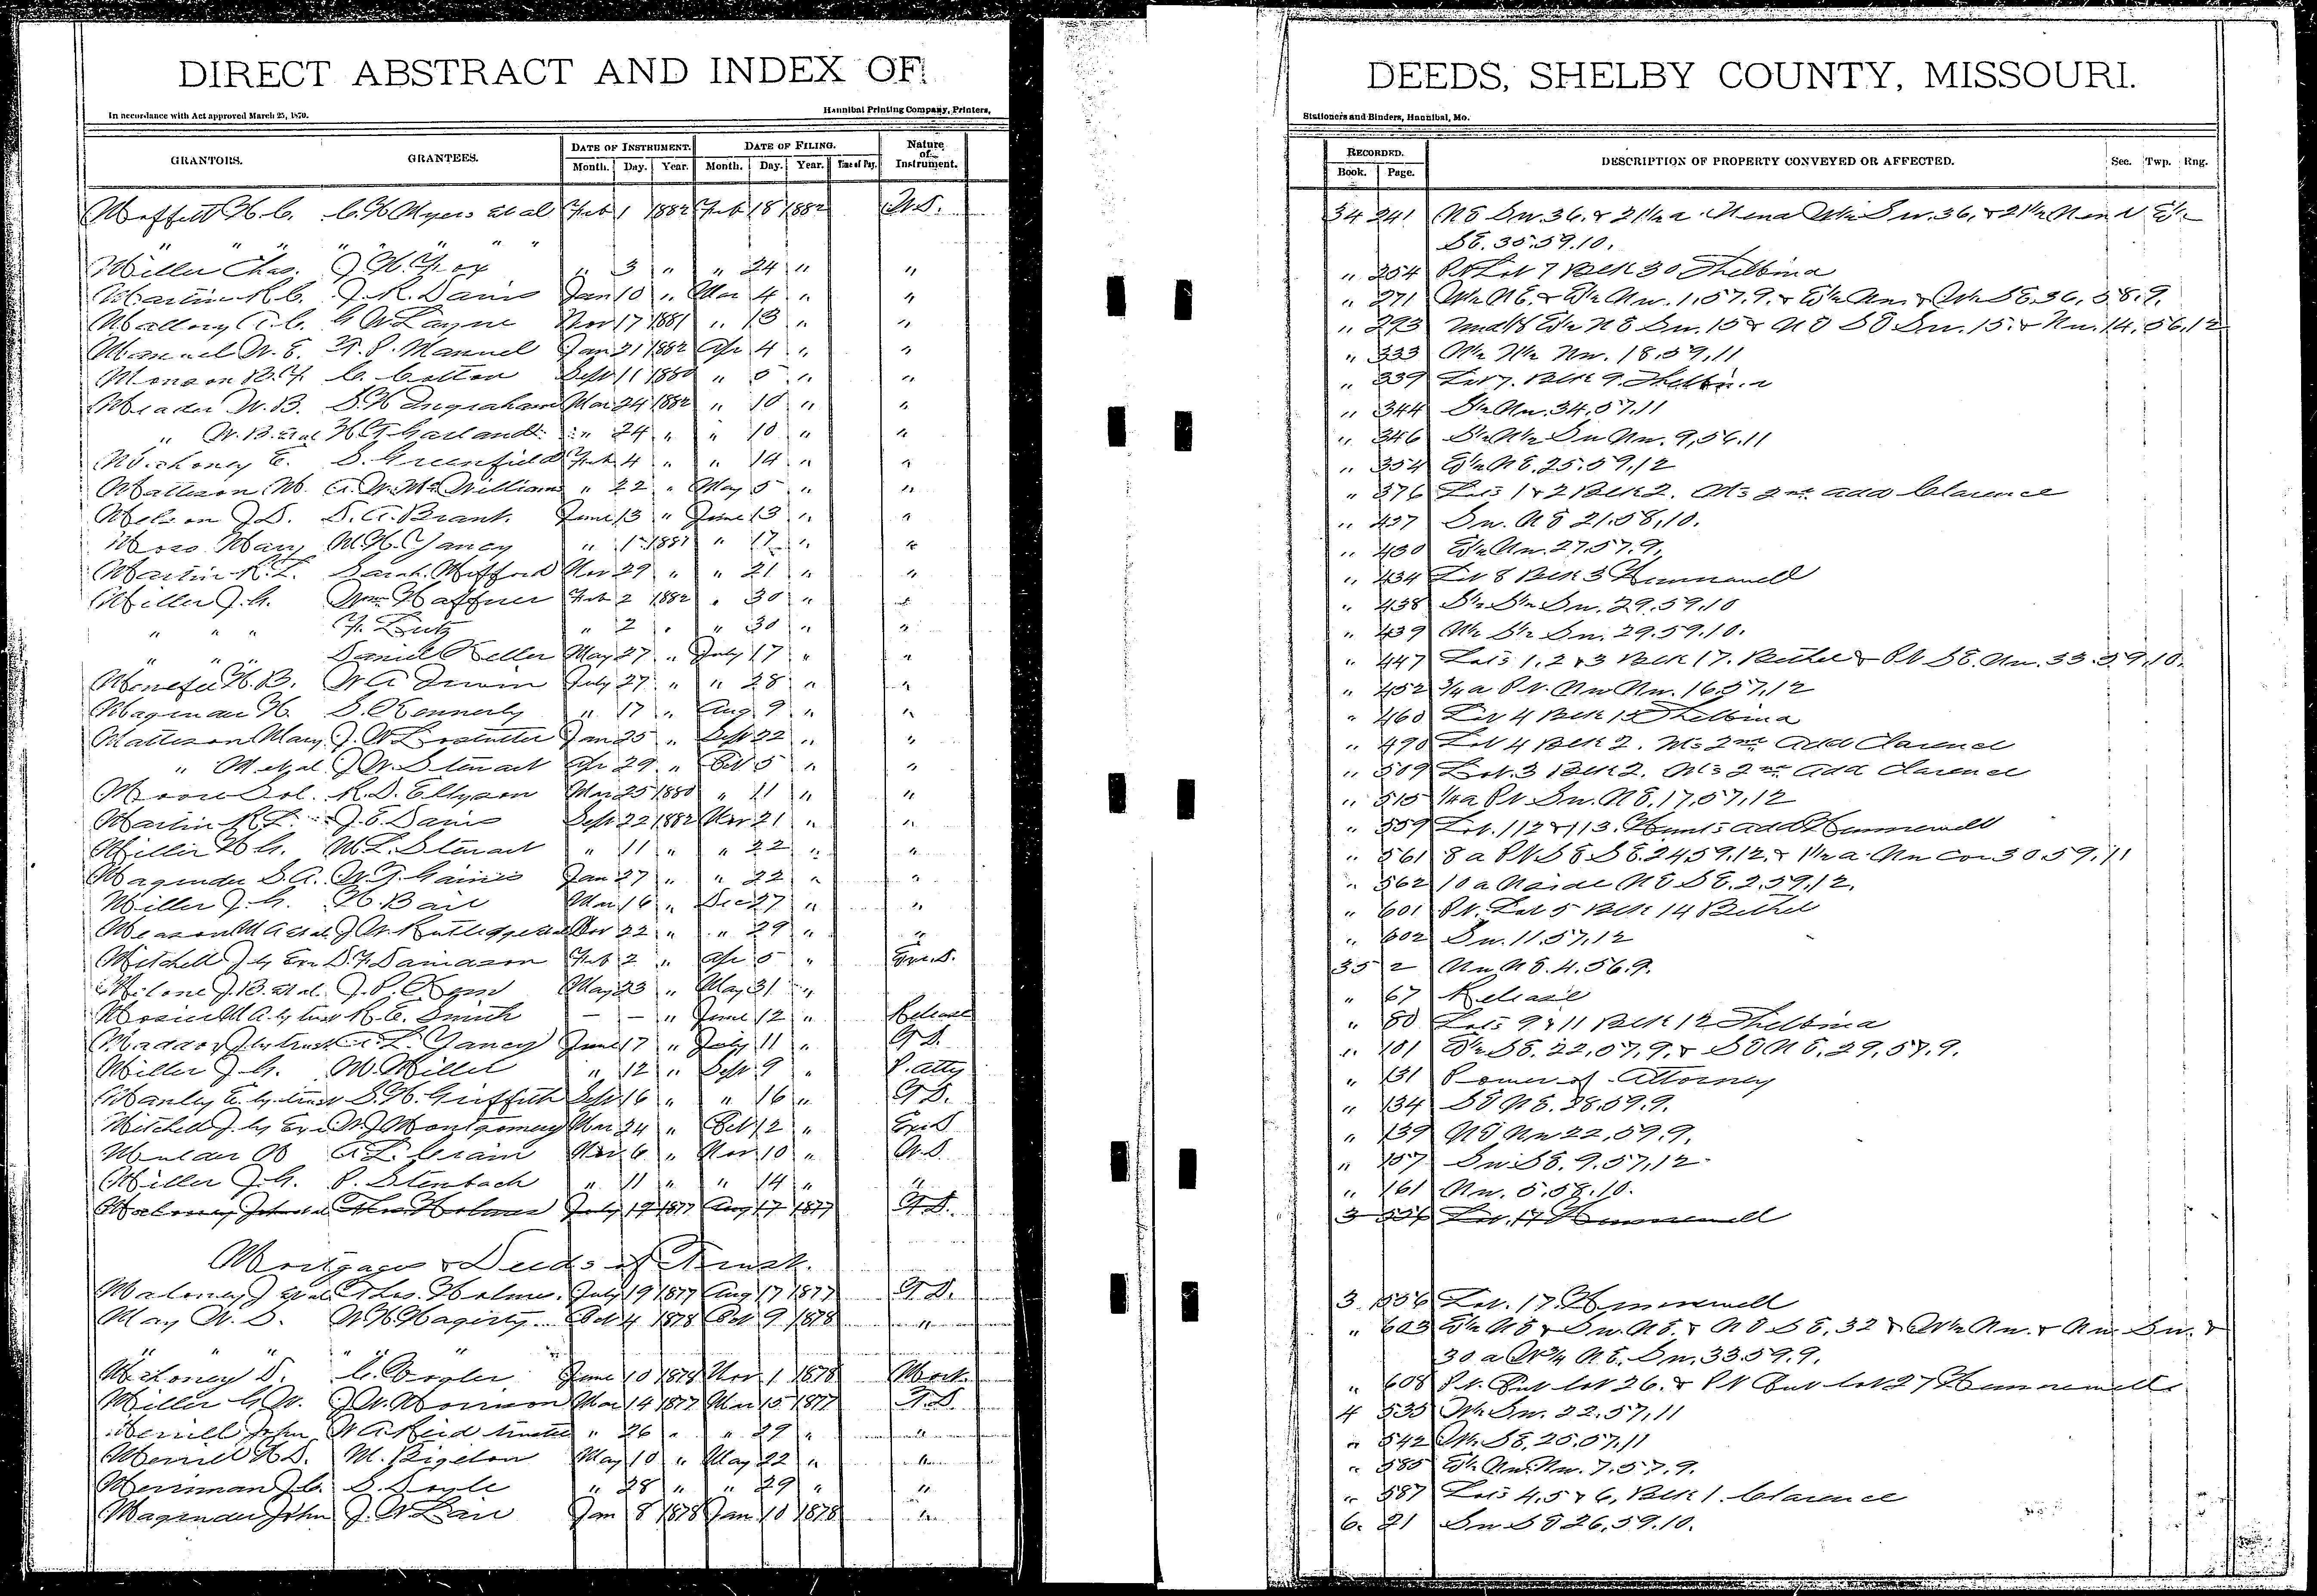 DIRECT ABSTRACT AND INDEX OF
In accordance with Act approved March 25, 1870.
Hannibal Printing Company, Printers,
GRANTORS. GRANTEES. DATE OF INSTRUMENT. DATE OF FILING. Nature of Instrument.
Month. Day. Year. Month. Day. Year. Time of Day.
Moffett H. C. C. H. Myers et al Feb 1 1882 Feb 18 1882 W.D.
" " " " " " "
Miller Chas. J. H. Fox " 3 " " 24 " "
Martin R. C. J. R. Davis Jan 10 " Mar 4 " "
Mallory A. C. G W Layne Nov 17 1881 " 13 " "
Manuel W. E. F. P. Manuel Jan 21 1882 Apr 4 " "
Monson B. F. C. Cotton Sept 11 1880 " 5 " "
Meader W. B. S. H Ingraham Mar 24 1882 " 10 " "
" W. B. et al H. T. Garland " 24 " " 10 " "
Mahoney E. S. Greenfield Feb 4 " " 14 " "
Matteson M. A. W. McWilliams " 22 " May 5 " "
Melson J. D. D. A. Brant June 13 " June 13 " "
Moss Mary M. H. Yancy " 1 1881 " 17 " "
Martin R. L. Sarah Mifford Nov 29 " " 21 " "
Miller J. G. Wm Haffner Feb 2 1882 " 30 " "
" " " F. Lutz " 2 " " 30 " "
" " " Daniel Keller May 27 " July 17 " "
Menefee H. B. W A Irwin July 27 " " 28 " "
Magruder H. S. Connerly " 17 " Aug 9 " "
Matteson Mary J. W Lostutter Jan 25 " Sept 22 " "
" M et al J. W. Stewart Apr 29 " Oct 5 " "
Moore Sol. R. D. Ellyson Mar 25 1880 " 11 " "
Martin R L. J. E. Davis Sept 22 1882 Nov 21 " "
Miller H G. M. L. Stewart " 11 " " 22 " "
Magruder S. A. W. T. Gaines Jan 27 " " 22 " "
Miller J. G. H. Bair Mar 16 " Dec 27 " "
Meason M A et al J. W. Rutledge et al Nov 22 " " 29 " "
Mitchell J by Exr D. F. Davidson Feb 2 " Apr 5 " Exr. D.
Milone J. B. et al J. P. May 23 " May 31 "
M A by trust R. E. Smith — — " June 12 " Release
Maddox J by trust A. L. Yancy June 17 " July 11 " T D.
Miller J. G. M. Miller " 12 " Sept 9 " P. atty
Manley E. by trust S. H. Griffith Sept 16 " " 16 " T D.
Mitchell J. by Exr W J Montgomery Mar 24 " Oct 12 " Ex D
Mulder B A L. Crain Nov 6 " Nov 10 " W. D.
Miller J. G. P. Stenbach " 11 " " 14 " "
Maloney John et al Thos Holmes July 19 1877 Aug 17 1877 T D.
Mortgages & Deeds of Trust.
Maloney J et al Thos. Holmes. July 19 1877 Aug 17 1877 T D.
May W. D. W. H. Hagerty Oct 4 1878 Oct 9 1878 "
" " " " "
Mahoney D. C. Vogler June 10 1878 Nov 1 1878 Mort.
Miller G W. J. W. Morrison Mar 14 1877 Mar 15 1877 T. D.
Merrill John W A Reid trustee " 26 " " 29 " "
Merrill H D. M. Bigelow May 10 " May 22 " "
Merriman J. C. S. Doyle " 28 " " 29 " "
Magruder John J. W Lair Jan 8 1878 Jan 10 1878 "
DEEDS, SHELBY COUNTY, MISSOURI.
Stationers and Binders, Hannibal, Mo.
RECORDED. DESCRIPTION OF PROPERTY CONVEYED OR AFFECTED. Sec. Twp. Rng.
Book. Page.
34 241 NE Sw. 36. & 21½ a N end W½ Sw. 36, & 21½ N end E½
SE. 35.59.10.
" 254 Pt Lot 7 Blk 30 Shelbina
" 271 W½ NE. & E½ Nw. 1,57.9. & E½ Nw & W½ SE 36, 58.9.
" 293 und 1/8 E½ NE Sw. 15 & NE SE Sw. 15. & Nw. 14, 56,12
" 333 W½ N½ Nw. 18.59,11
" 339 Lot 7. Blk 9. Shelbina
" 344 S½ Nw. 34,57.11
" 346 S½ N½ Sw Nw. 9,56.11
" 354 E½ NE. 25.59.12
" 376 Lots 1 & 2 Blk 2. M's 2nd add Clarence
" 427 Sw. NE 21.58,10.
" 430 E½ Nw. 27.57.9,
" 434 Lot 8 Blk 3 Hunnewell
" 438 S½ S½ Sw. 29.59.10
" 439 N½ S½ Sw. 29.59.10.
" 447 Lots 1,2 & 3 Blk 17. Bethel & Pt SE. Nw. 33.59.10.
" 452 ¾ a Pt. Nw Nw. 16.57,12
" 460 Lot 4 Blk 15 Shelbina
" 490 Lot 4 Blk 2. M's 2nd Add Clarence
" 509 Lot. 3 Blk 2. M's 2nd Add Clarence
" 515 ¼ a Pt Sw. NE. 17.57,12
" 559 Lot. 112 & 113. Hunt's add Hunnewell
" 561 8 a Pt SE SE. 24 59,12. & 1½ a Nw cor 30 59,11
" 562 10 a N side NE SE. 2.59.12.
" 601 Pt. Lot 5 Blk 14 Bethel
" 602 Sw. 11.57,12
35 2 Nw NE. 4.56.9.
" 67 Release
" 80 Lots 9 & 11 Blk 12 Shelbina
" 101 E½ SE. 22,57,9. & SE NE. 29,57.9.
" 131 Power of Attorney
" 134 SE NE. 28.59.9.
" 139 NE Nw 22,59.9.
" 157 Sw SE. 9.57,12
" 161 Nw. 5.58.10.
3 536 Lot. 17 Hunnewell
3 536 Lot. 17 Hunnewell
" 603 E½ NE & Sw. NE. & NE SE, 32 & W½ Nw. & Nw Sw. &
30 a W¾ NE. Sw. 33.59.9.
" 608 Pt. Out lot 26. & Pt Out lot 27 Hunnewell
4 535 W½ Sw. 22.57,11
" 542 W½ SE. 25.57,11
" 585 E½ Nw. Nw. 7.57.9.
" 587 Lots 4,5 & 6, Blk 1. Clarence
6. 21 Sw SE 26,59.10.